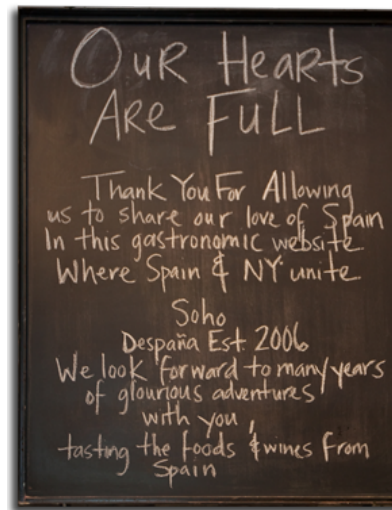 OuR HeaRts
ARe FuLL
Thank You For Allowing
us to share our love of Spain
In this gastronomic website
Where Spain & NY unite
Soho
Despaña Est 2006
We look forward to many years
of glourious adventures
with you,
tasting the foods & wines from
Spain